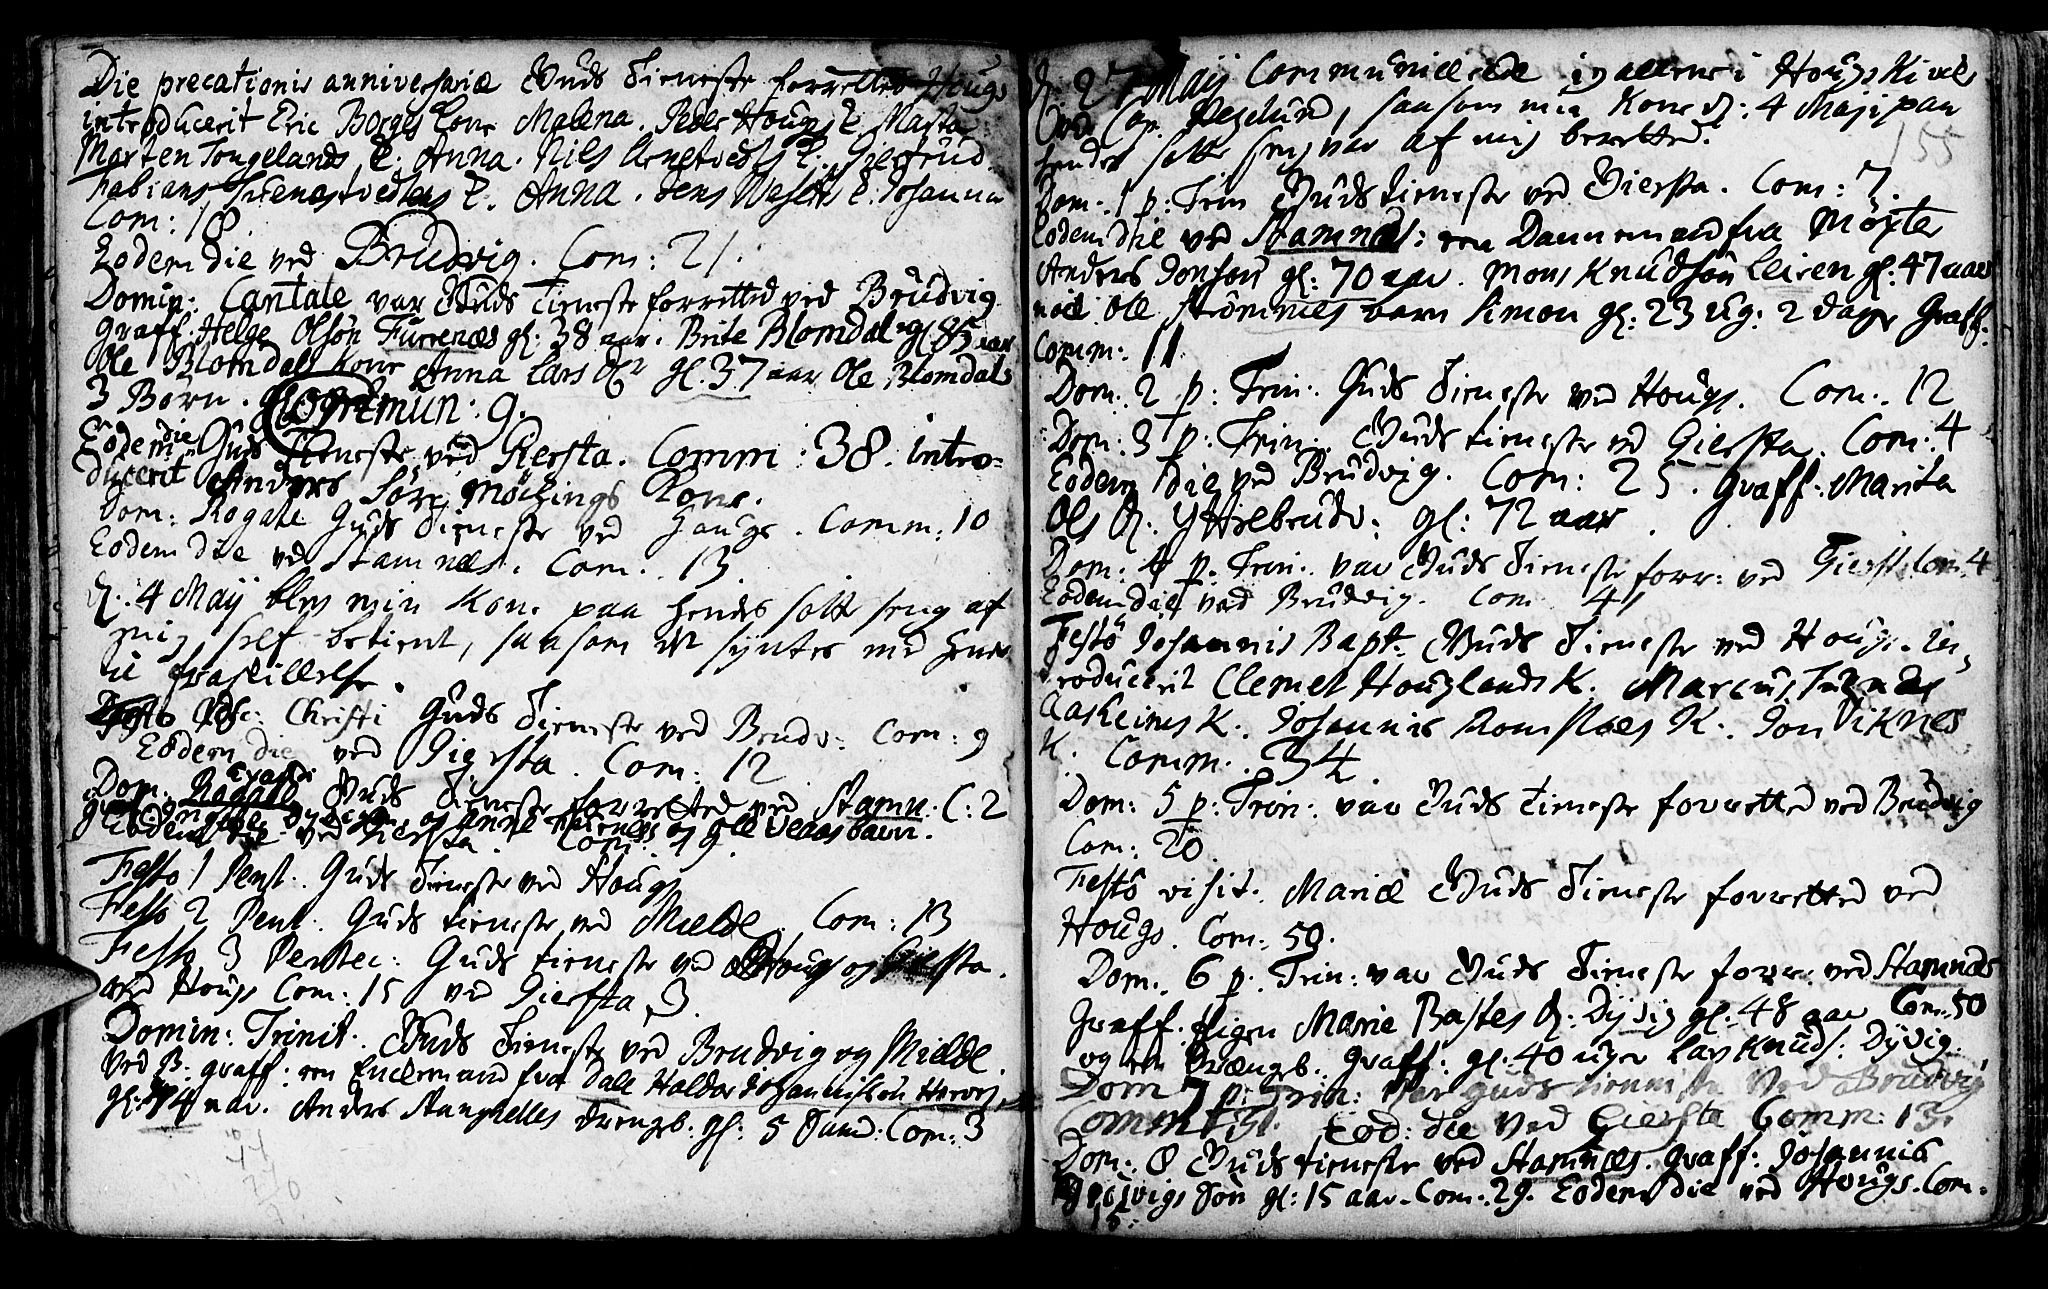 Die precationis anniversariæ Guds tieneste forrettet Hougs
introducerit Eric Borges kone Malena. Peder Hougs k. Marta
Morten Tongelands k. Anna. Nils Arnetvedts k. Giertrud
Fabians k. Anna. Jens k. Johanna
Com: 18
Eodem die ved Brudvig. Com: 21.
Domin: Cantate var Guds tieneste forretted ved Brudvig
Graff: Helge Olsøn Furrenæs gl: 38 aar. Brite Blomdal gl 85 aar
Ole Blomdals kone Anna Lars dr gl. 37 aar Ole Blomdals
3 Børn. Commun: 9.
Eodem die Guds tieneste ved Giersta. Comm: 38. intro-
ducerit Anders Kone.
Dom: Rogate Guds tieneste ved Hougs. Comm: 10
Eodem die ved Stamnæs. Com: 13
d: 4 Maij blef min Kone paa hendes sotte seng af
mig self betient, saasom det syntes med hende
til fraskillelse.
Festo Asc: Christi Guds tieneste ved Brudv: Com: 9
Eodem die ved Giersta. Com: 12
Dom. Exaudi Guds tieneste forretted ved Stamn: C: 2
Eodem die ved Giersta. Com: 19.
Festo 1 Pent. Guds tieneste ved Hougs
Festo 2 Pent. Guds tieneste ved Mielde. Com: 13
Festo 3 Pentec: Guds tieneste ved Hougs og Giersta.
ved Hougs Com: 15 ved Giersta 3.
Domin: Trinit. Guds tieneste ved Brudvig og Mielde.
ved B: graff: en Enckemand fra Dale Haldor Johannissøn
gl: 74 aar. Anders Stanghelles drengb. gl: 5 Com: 3
d: 27 Maij Communicerede i Hougs Kirke
saasom min Kone d: 4 Maji paa
hendes sotte seng var af mig berettet.
155
Dom. 1 p: Trin Guds tieneste ved Giersta. Com: 7.
Eodem die ved Stamnæs: en Dannemand fra Møxter
Anders Jonsøn gl: 70 aar. Mons Knudsøn Leiren gl: 47 aar
Ole Strømmes barn Simon gl: 23 ug: 2 dage Graff:
Comm: 11
Dom. 2 p: Trin: Guds tieneste ved Hougs. Com. 12
Dom: 3 p: Trin: Guds tieneste ved Giersta. Com: 4
Eodem die ved Brudvig. Com: 25. Graff: Marita
Ols d: Yttrebrudv: gl: 72 aar.
Dom: 4 p. Trin: var Guds tieneste forr: ved Gierst. Com: 4
Eodem die ved Brudvig. Com 4
Festo Johannis Bapt. Guds tieneste ved Hougs. in-
troducerit Clemet Houglands K. Marcus
K. Johannis K. Jon Viknes
K. Comm: 34.
Dom: 5 p: Trin: var Guds tieneste forretted ved Brudvig
Com: 20.
Festo visit. Mariæ Guds tieneste forretted ved
Hougs. Com: 50.
Dom: 6 p. Trin: var Guds tieneste forr: ved Stamnæs
Graff: Marie d: Dyvig gl: 48 aar Com: 50
og en drengb. Graff: gl: 40 uger Lars Knuds: Dyvig.
Dom 7 p: Trin: var guds tienniste ved Brudvig
Comm: 31. Eod: die ved Giersta Comm: 13.
Dom: 8 Guds tieneste ved Stamnæs. Graff: Johannis
søn gl: 15 aar. Com: 29. Eodem die ved Hougs. Com.
15.